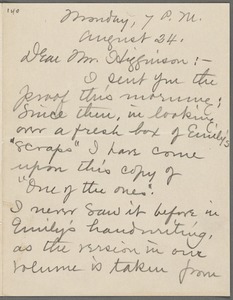 140
Monday, 7 P.M.
August 24.
Dear Mr. Higginson:-
I sent you the
proof this morning;
Since then, in looking
over a fresh box of Emily's
"scraps" I have come
upon this copy of
"One of the ones".
I never saw it before in
Emily's handwriting,
as the version in our
volume is taken from